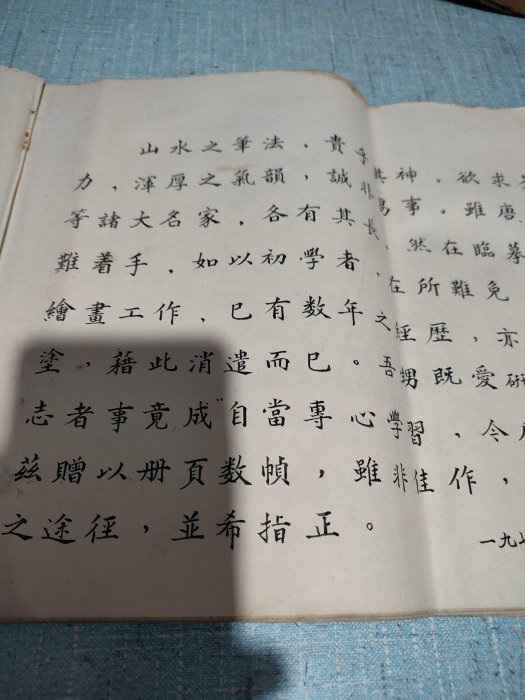 山水之筆法，貴乎其神，欲求
力，渾厚之氣韻，誠非易事。雖唐
等諸大名家，各有其長，然在臨摹
難着手，如以初學者，在所難免
繪畫工作，已有数年之經歷，亦
塗，藉此消遣而已。吾甥既愛研
志者事竟成"自當專心學習，令
茲贈以册頁数幀，雖非佳作，
之途徑，並希指正。
一九七